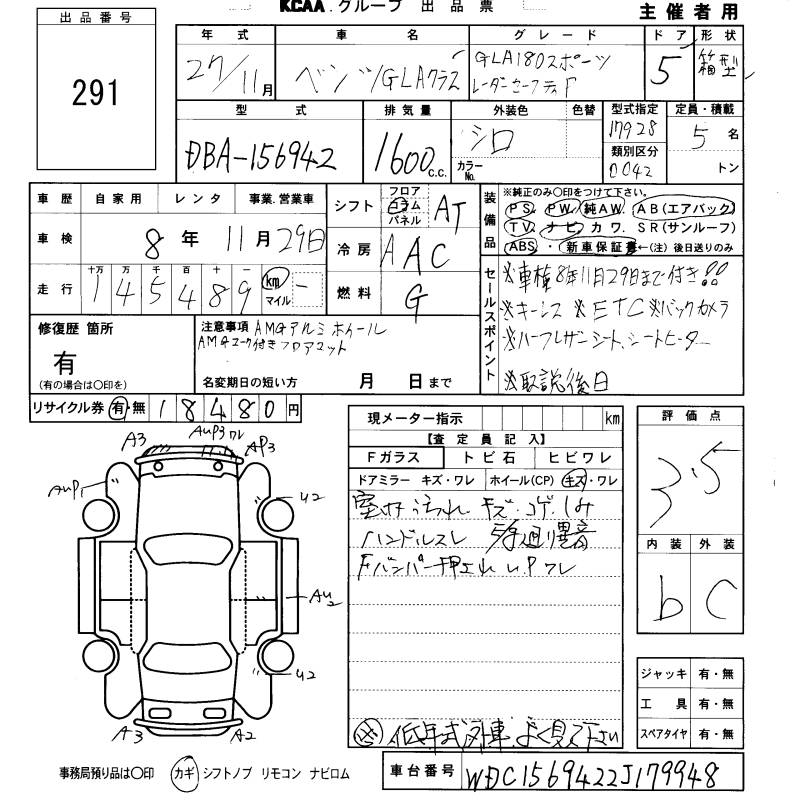 KCAA.グループ 出品票
主催者用
出品番号
291
年式 車名 グレード ドア 形状
27/11月 ベンツGLAクラス GLA180スポーツ 5 箱型
レーダーセーフティF
型式 排気量 外装色 色替 型式指定 定員・積載
DBA-156942 1600 c.c. シロ 17928 5名
カラーNo. 類別区分 0042 トン
車歴 自家用 レンタ 事業.営業車
シフト フロア コラム パネル AT
装備品 ※純正のみ○印をつけて下さい。
PS. PW. 純AW. AB(エアバック)
TV. ナビ カワ. SR(サンルーフ)
ABS ・ 新車保証書 ←(注)後日送りのみ
車検 8年11月29日
冷房 AAC
走行 十万 万 千 百 十 一
145489 km マイル
燃料 G
セールスポイント
※車検8年11月29日まで付き!!
※キーレス ※ETC※バックカメラ
※ハーフレザーシート、シートヒーター
※取説後日
修復歴 箇所
有
(有の場合は○印を)
注意事項 AMGアルミホイール
AMGマーク付きフロアマット
名変期日の短い方 月 日まで
リサイクル券 有・無 18480円
現メーター指示 km
【査定員記入】
Fガラス トビ石 ヒビワレ
ドアミラー キズ・ワレ ホイール(CP) キズ・ワレ
室内汚れ キズ.コゲ.しみ
ハンドルスレ
異音
Fバンパー押され U.P ワレ
低年式外車.よく見て下さい
評価点
3.5
内装 外装
b C
A3 AUP3ワレ AP3
AUP1
U2
AU2
U2
A3 A2
ジャッキ 有・無
工具 有・無
スペアタイヤ 有・無
事務局預り品は○印 カギ シフトノブ リモコン ナビロム
車台番号 WDC1569422J179948